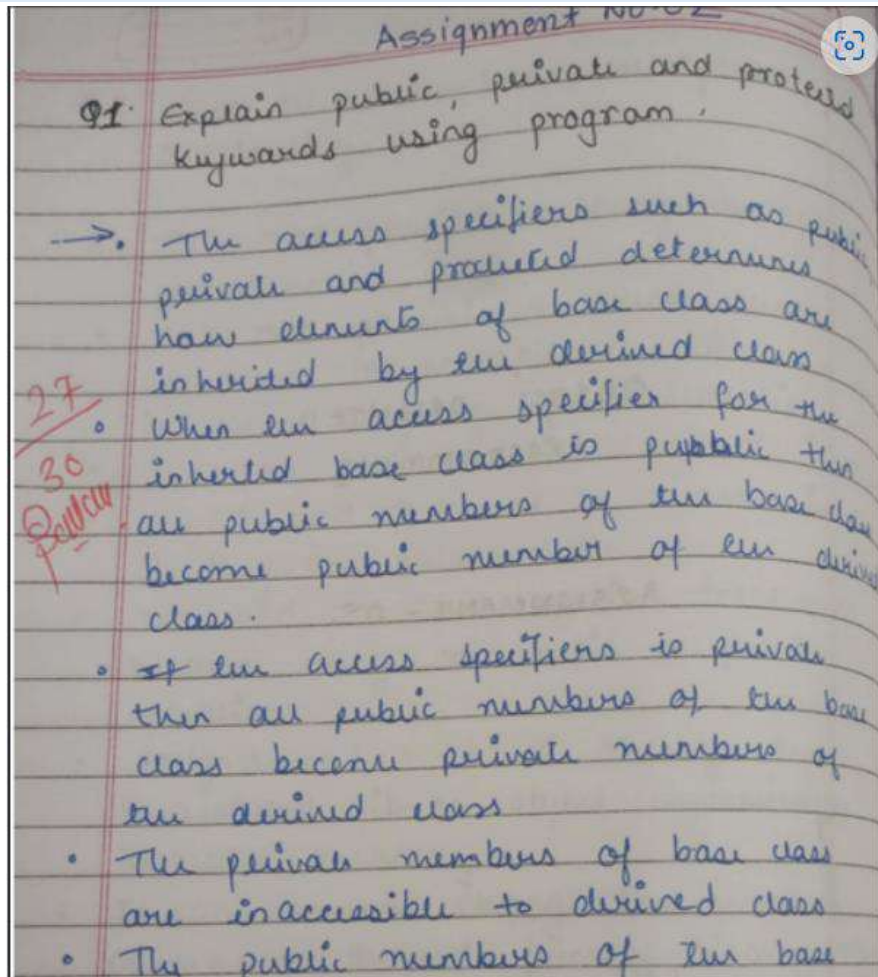 Assignment No. 02
Q1. Explain public, private and protected
keywords using program.
→. The access specifiers such as public
private and protected determines
how elements of base class are
inherited by the derived class
27
• When the access specifier for the
30
inherited base class is pupblic then
all public members of the base class
become public member of the derived
class.
• If the access specifiers is private
then all public members of the base
class become private members of
the derived class
• The private members of base class
are inaccessible to derived class
• The public members of the base